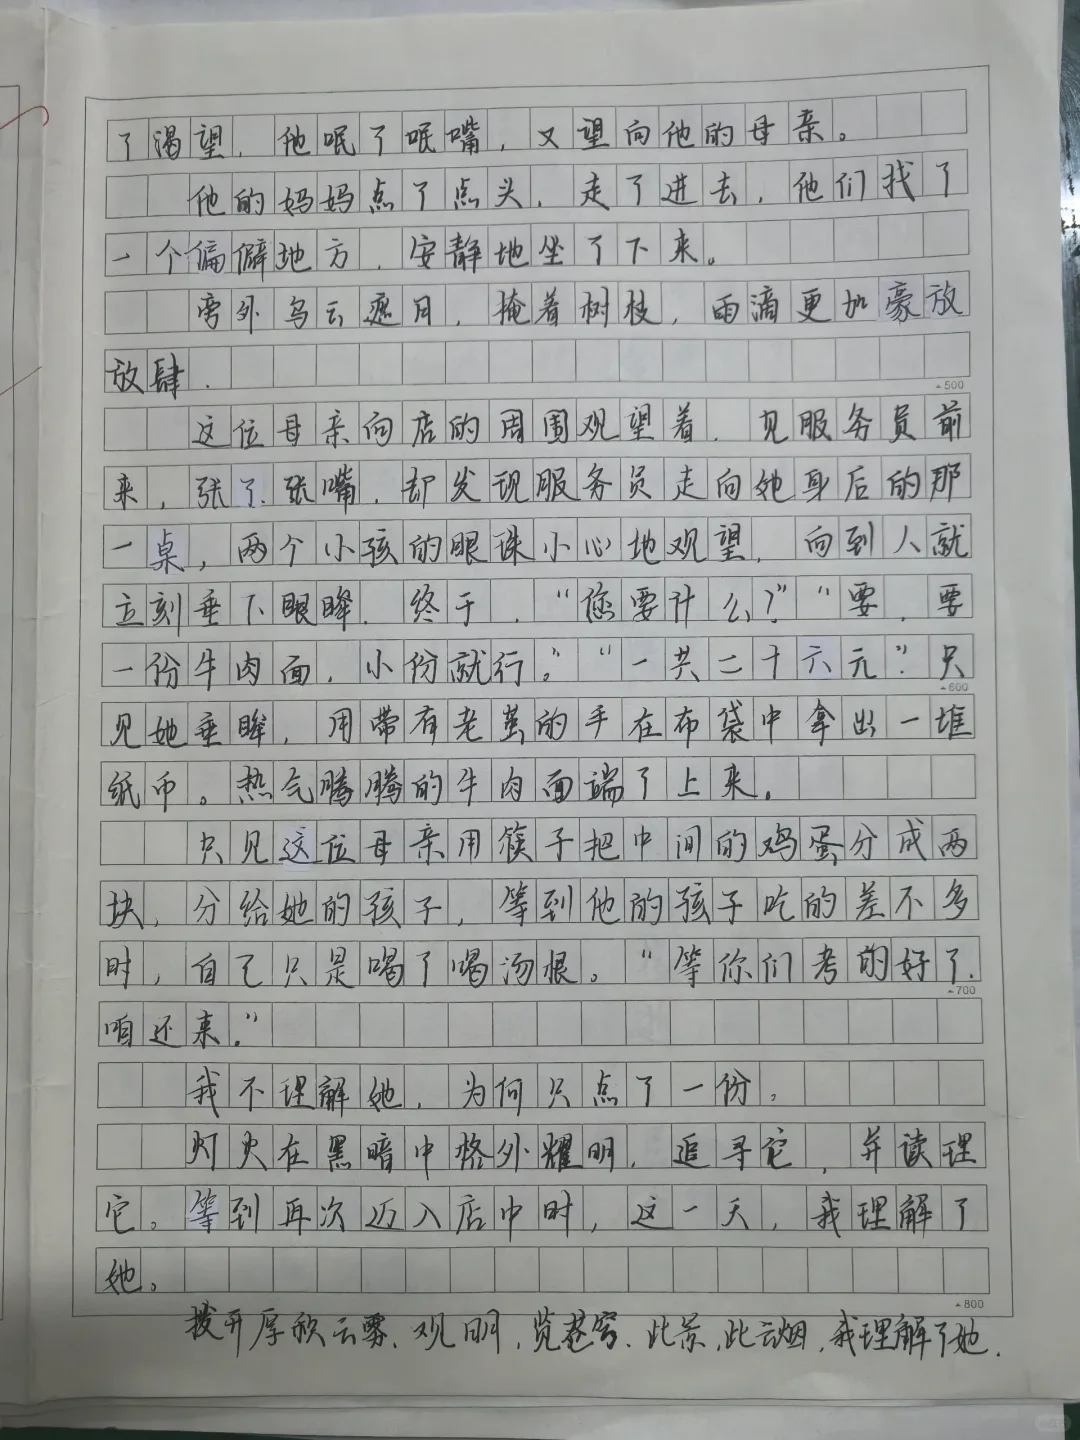 了渴望，他抿了抿嘴，又望向他的母亲。
他的妈妈点了点头，走了进去，他们找了
一个偏僻地方，安静地坐了下来。
窗外乌云遮月，掩着树枝，雨滴更加豪放
放肆．
▲500
这位母亲向店的周围观望着．见服务员前
来，张了张嘴，却发现服务员走向她身后的那
一桌，两个小孩的眼珠小心地观望，向到人就
立刻垂下眼眸．终于，“您要什么？”“要，要
一份牛肉面，小份就行。”“一共二十六元”。只
▲600
见她垂眸，用带有老茧的手在布袋中拿出一堆
纸币。热气腾腾的牛肉面端了上来。
只见这位母亲用筷子把中间的鸡蛋分成两
块，分给她的孩子，等到他的孩子吃的差不多
时，自己只是喝了喝汤根。“等你们考的好了．
▲700
咱还来．”
我不理解她，为何只点了一份，
灯火在黑暗中格外耀明，追寻它，并读理
它。等到再次迈入店中时，这一天，我理解了
她。
▲800
拨开厚积云雾．观明，览苍穹．此景，此云烟，我理解了她．